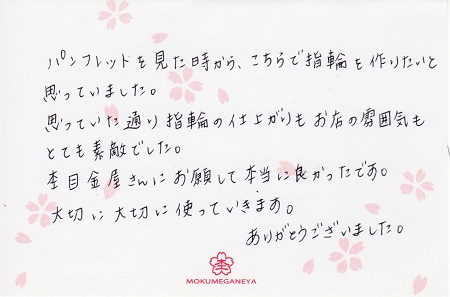 パンフレットを見た時から、こちらで指輪を作りたいと
思っていました。
思っていた通り指輪の仕上がりもお店の雰囲気も
とても素敵でした。
杢目金屋さんにお願して本当に良かったです。
大切に大切に使っていきます。
ありがとうございました。
杢
MOKUMEGANEYA